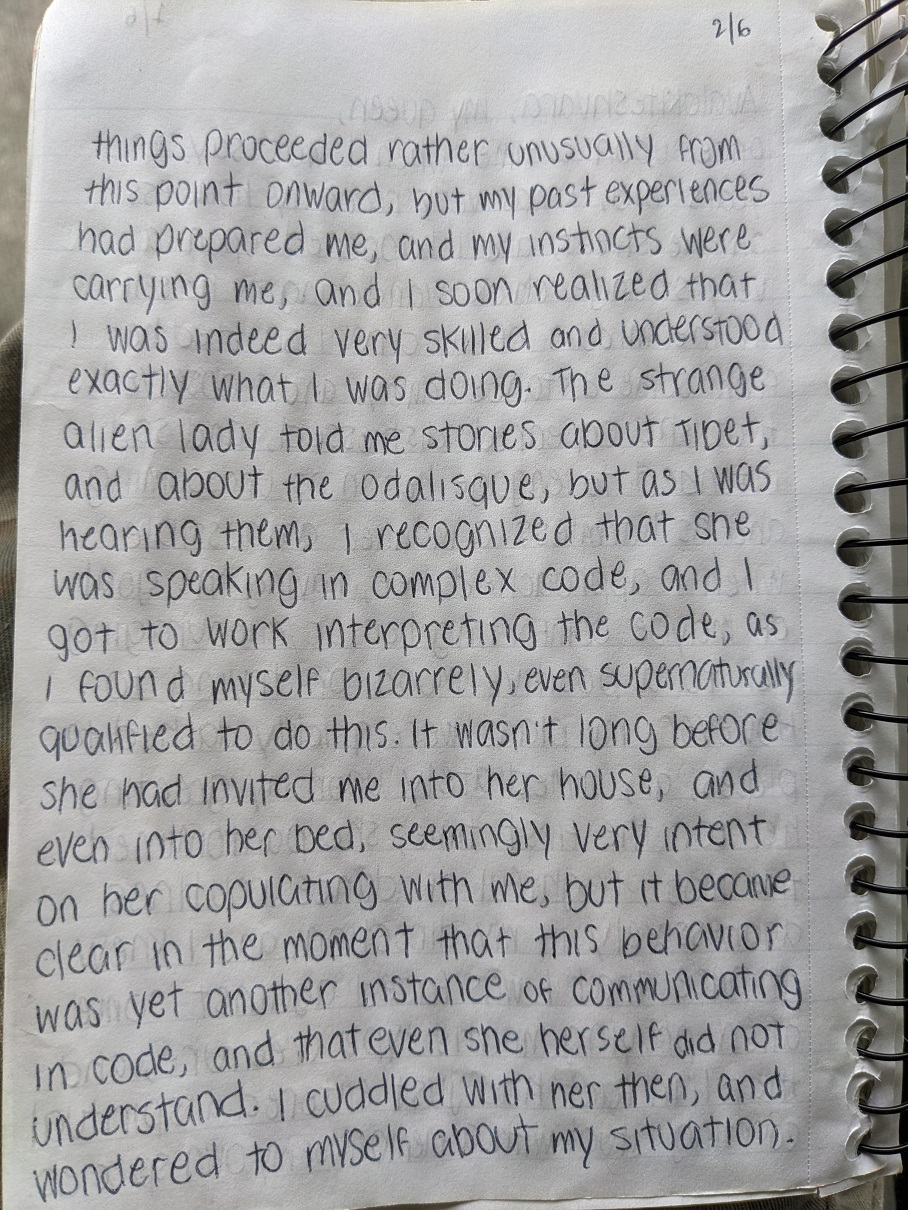 2/6
things proceeded rather unusually from
this point onward, but my past experiences
had prepared me, and my instincts were
carrying me, and I soon realized that
I was indeed very skilled and understood
exactly what I was doing. The strange
alien lady told me stories about Tibet,
and about the odalisque, but as I was
hearing them, I recognized that she
was speaking in complex code, and I
got to work interpreting the code, as
I found myself bizarrely, even supernaturally
qualified to do this. It wasn't long before
she had invited me into her house, and
even into her bed, seemingly very intent
on her copulating with me, but it became
clear in the moment that this behavior
was yet another instance of communicating
in code, and that even she herself did not
understand. I cuddled with her then, and
wondered to myself about my situation.